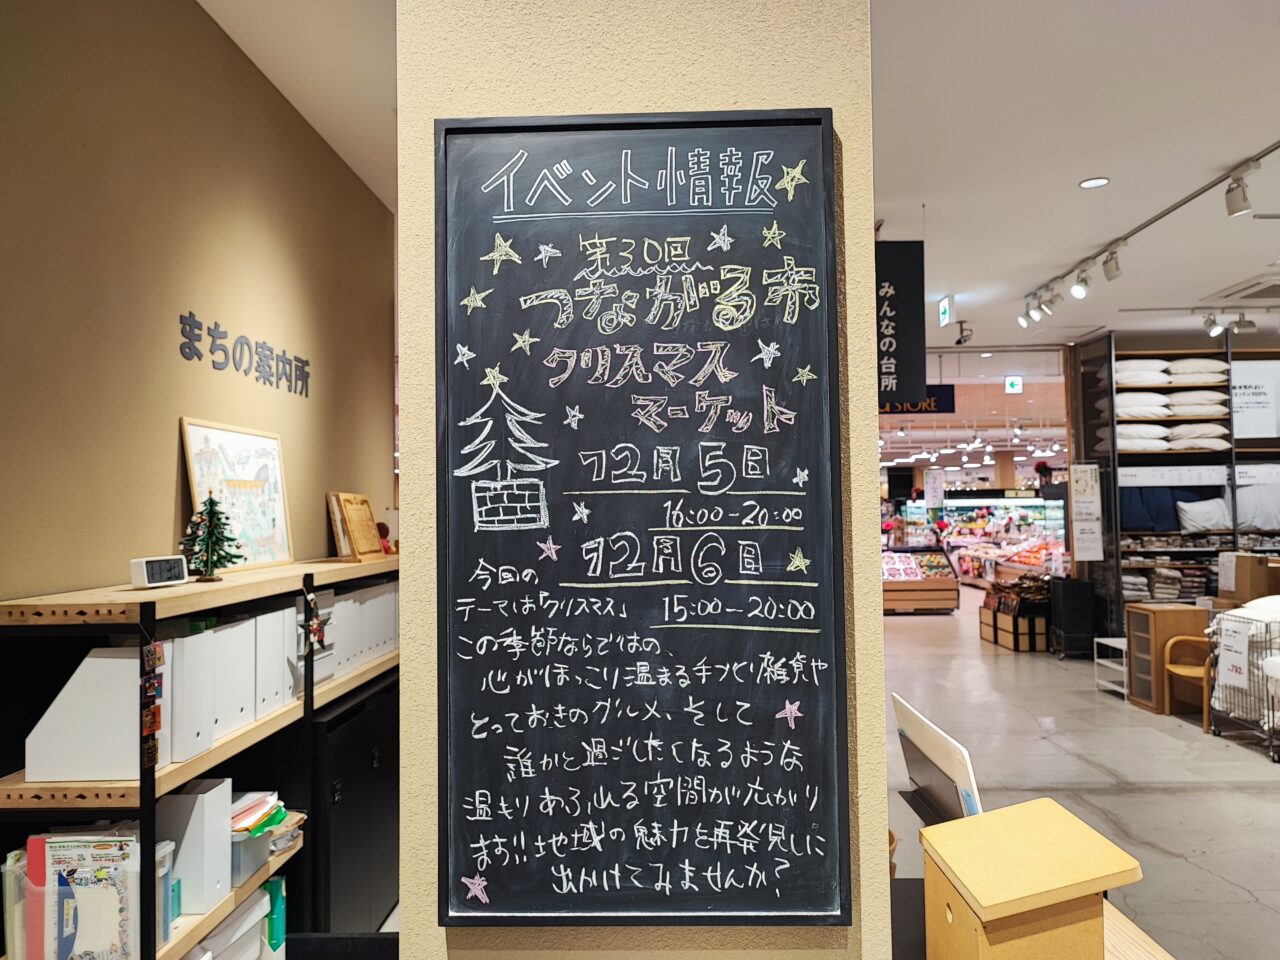 まちの案内所
イベント情報
第30回
つながる市
クリスマス
マーケット
12月5日
16:00-20:00
12月6日
今回の
テーマは「クリスマス」
15:00-20:00
この季節ならではの、
心がほっこり温まる手づくり雑貨や
とっておきのグルメ、そして
誰かと過ごしたくなるような
温もりあふれる空間が広がり
ます!!地域の魅力を再発見しに
出かけてみませんか?
みんなの台所
STORE